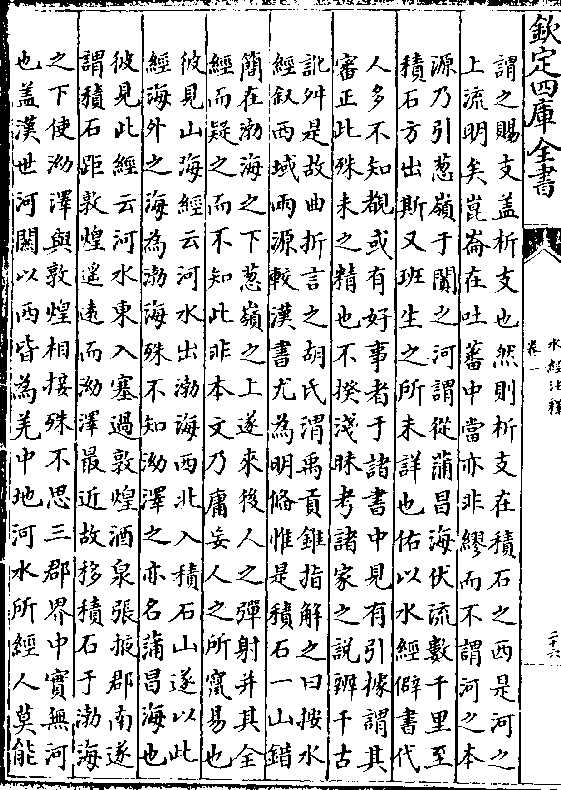 欽定四庫全書
水經注釋
卷一
二十六
謂之賜支盖析支也然則析支在積石之西是河之
上流明矣崑崙在吐蕃中當亦非繆而不謂河之本
源乃引葱嶺于闐之河謂從蒲昌海伏流數千里至
積石方出斯又班生之所未詳也佑以水經僻書代
人多不知覩或有好事者于諸書中見有引據謂其
審正此殊未之精也不揆淺昧考諸家之說辨千古
訛舛是故曲折言之胡氏渭禹貢錐指解之曰按水
經叙西域兩源較漢書尤為明備惟是積石一山錯
簡在渤海之下葱嶺之上遂來後人之彈射并其全
經而疑之而不知此非本文乃庸妄人之所竄易也
彼見山海經云河水出渤海西北入積石山遂以此
經海外之海為渤海殊不知泑澤之亦名蒲昌海也
彼見此經云河水東入塞過敦煌酒泉張掖郡南遂
謂積石距敦煌遥遠而泑澤最近故移積石于渤海
之下使泑澤與敦煌相接殊不思三郡界中實無河
也盖漢世河關以西皆為羌中地河水所經人莫能